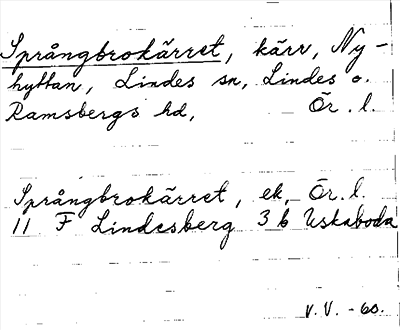 Språngbrokärret, kärr, Ny-
hyttan, Lindes sn, Lindes o.
Ramsbergs hd, Ör. l.
Språngbrokärret, ek, Ör. l.
11 F Lindesberg 3 b Uskaboda
V. V. -60.